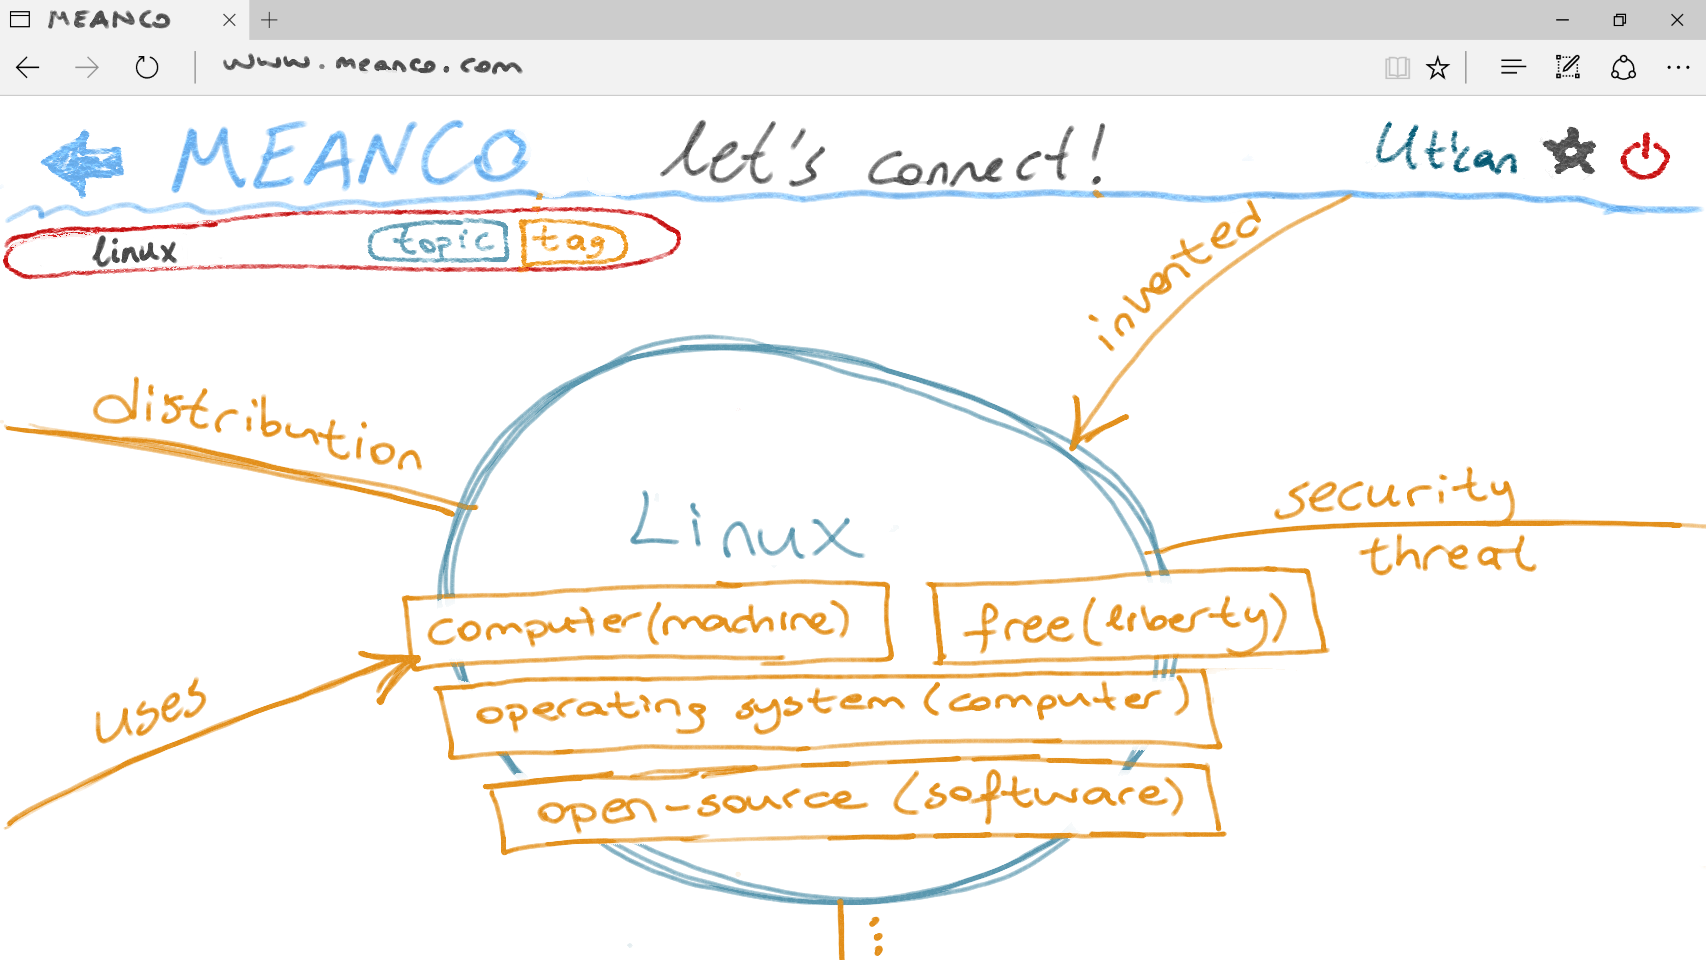 MEANCO
www.meanco.com
MEANCO let's connect! Utkan
linux topic tag
invented
distribution
Linux
security
threat
computer(machine) free(liberty)
uses
operating system (computer)
open-source (software)